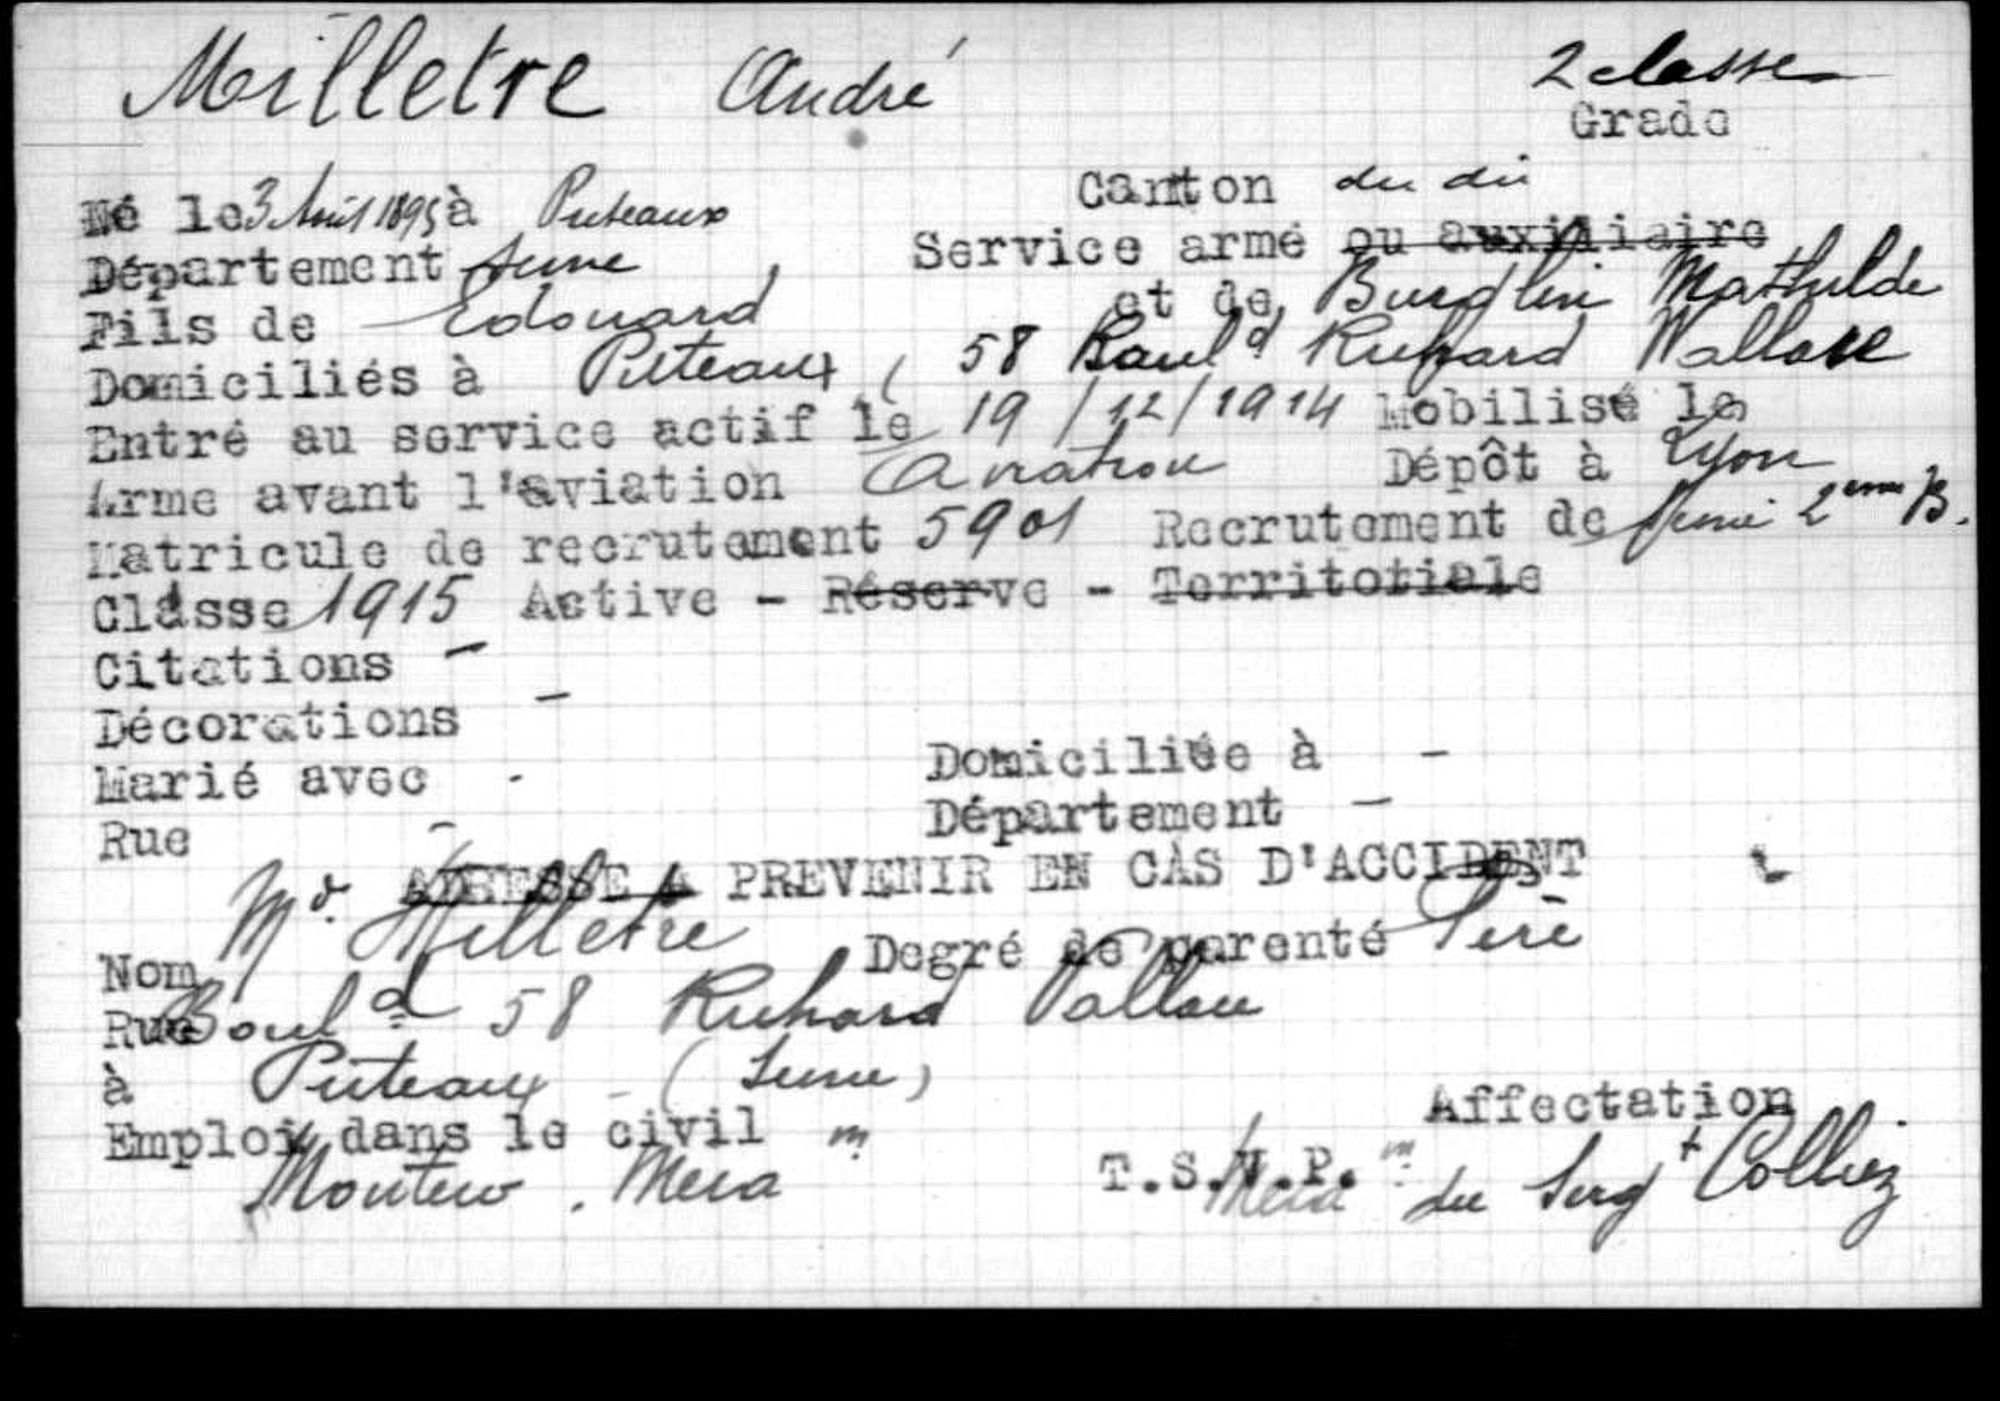 Milletre André 2 classe
Grade
Né le 3 Août 1895 à Puteaux Canton du dit
Département Seine Service armé ou auxiliaire
Fils de Edouard et de Burglin Mathilde
Domiciliés à Puteaux, 58 Boul^d Richard Wallace
Entré au service actif le 19/12/1914 Mobilisé le
Arme avant l'aviation Aviation Dépôt à Lyon
Matricule de recrutement 5901 Recrutement de Seine 2ème B.
Classe 1915 Active - Réserve - Territotiale
Citations -
Décorations -
Marié avec - Domiciliée à -
Rue - Département -
ADRESSE A PREVENIR EN CAS D'ACCIDENT
Nom Mr Milletre Degré de parenté Père
Rue Boul^d 58 Richard Vallace
à Puteaux - (Seine)
Emploi dans le civil Affectation
Monteur . Meca T.S.V.P. Meca du Serg^t Colliez